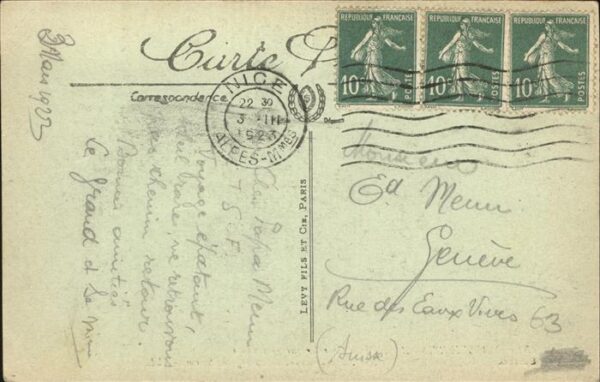 Carte
RÉPUBLIQUE FRANÇAISE
10c
POSTES
RÉPUBLIQUE FRANÇAISE
10c
POSTES
RÉPUBLIQUE FRANÇAISE
10c
POSTES
Correspondance
NICE
22 30
3 -III
1923
ALPES-Mmes
3 Mars 1923
Cher Papa Menn
T.S.F.
Voyage épatant,
retrouvons
chemin retour.
Bonnes amitiés
Le grand et la
LEVY FILS ET Cie, PARIS
Monsieur
Ed Menn
Genève
Rue des Eaux Vives 63
(Suisse)